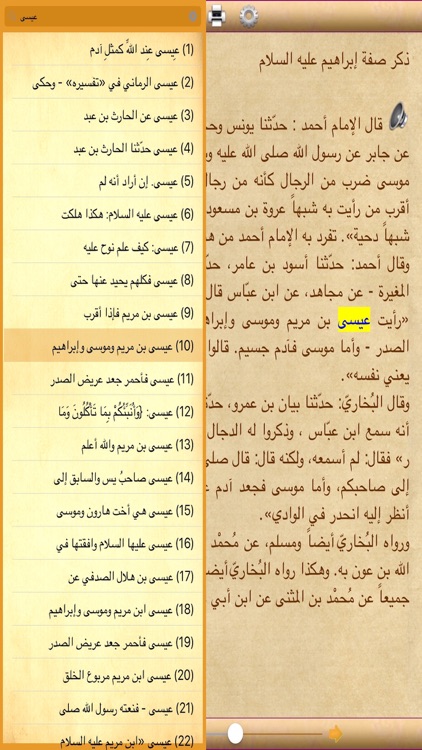 عيسى
(1) عِيسى عِند اللَّهِ كمثلِ آدم
(2) عيسى الرماني في «تفسيره» - وحكى
(3) عيسى عن الحارث بن عبد
(4) عيسى حدّثنا الحارث بن عبد
(5) عيسى. إن أراد أنه لم
(6) عيسى عليه السلام: هكذا هلكت
(7) عيسى: كيف علم نوح عليه
(8) عيسى فكلهم يحيد عنها حتى
(9) عيسى بن مريم فإذا أقرب
(10) عيسى بن مريم وموسى وإبراهيم
(11) عيسى فأحمر جعد عريض الصدر
(12) عيسى: {وَأُنَبِّئُكُمْ بِمَا تَأْكُلُونَ وَمَا
(13) عيسى بن مريم والله أعلم
(14) عيسى صاحبُ يس والسابق إلى
(15) عيسى هي أخت هارون وموسى
(16) عيسى عليها السلام وافقتها في
(17) عيسى بن هلال الصدفي عن
(18) عيسى ابن مريم وموسى وإبراهيم
(19) عيسى فأحمر جعد عريض الصدر
(20) عيسى ابن مريم مربوع الخلق
(21) عيسى - فنعته رسول الله صلى
(22) عيسى «ابن مريم عليه السلام
ذكر صفة إبراهيم عليه السلام
قال الإمام أحمد : حدّثنا يونس وحـ
عن جابر عن رسول الله صلى الله عليه و
موسى ضرب من الرجال كأنه من رجا
أقرب من رأيت به شبهاً عروة بن مسعود
شبهاً دحية». تفرد به الإمام أحمد من هـ
وقال أحمد: حدّثنا أسود بن عامر، حدّ
المغيرة - عن مجاهد، عن ابن عبّاس قال
«رأيت عيسى بن مريم وموسى وإبرا
الصدر - وأما موسى فآدم جسيم. قالوا
يعني نفسه».
وقال البُخاريّ: حدّثنا بيان بن عمرو، حدّ
أنه سمع ابن عبّاس , وذكروا له الدجال
ر» فقال: لم أسمعه، ولكنه قال: قال صلى
إلى صاحبكم، وأما موسى فجعد آدم
أنظر إليه انحدر في الوادي».
ورواه البُخاريّ أيضاً ومسلم، عن مُحمّد
الله بن عون به. وهكذا رواه البُخاريّ أيضـ
جميعاً عن مُحمّد بن المثنى عن ابن أبي